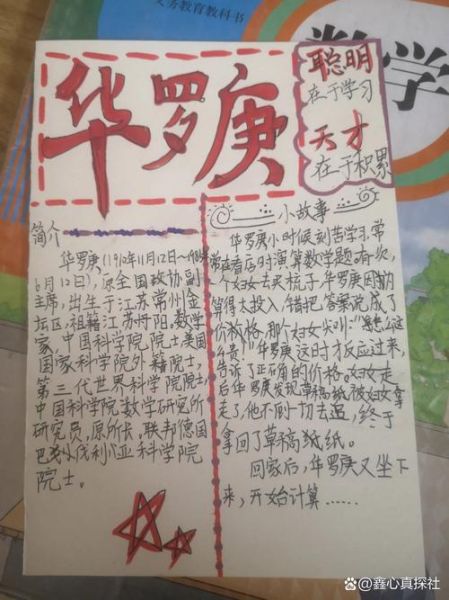 义务教育教科书
数学
华罗庚
聪明
在于学习
天才
在于积累
简介
华罗庚(1910年11月12日~1985年
6月12日),原全国政协副
主席,出生于江苏常州金
坛区,祖籍江苏丹阳,数学
家,中国科学院院士,美国
国家科学院外籍院士,
第三代世界科学院院士,
中国科学院数学研究所
研究员,原所长,联邦德国
巴伐利亚科学院
院士。
小故事
华罗庚小时候刻苦学习,常
常在看店时演算数学题,有次,
一个妇女去买梳子,华罗庚因为
算得太投入,错把答案说成了
价格,那个妇女尖叫:"怎么这
么贵!"华罗庚这时才反应过来,
告诉了正确的价格。妇女走
后华罗庚发现草稿纸被妇女拿
走了,他不顾一切去追,终于
拿回了草稿纸纸。
回家后,华罗庚又坐下
来,开始计算……
@鑫心真探社